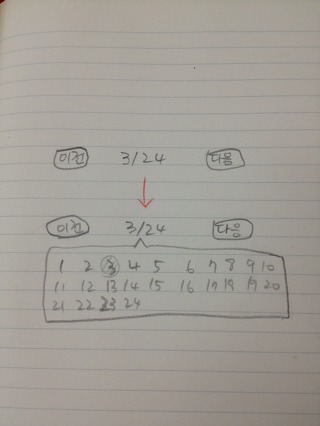 이전 3/24 다음
이전 3/24 다음
1 2 3 4 5 6 7 8 9 10
11 12 13 14 15 16 17 18 19 20
21 22 23 24